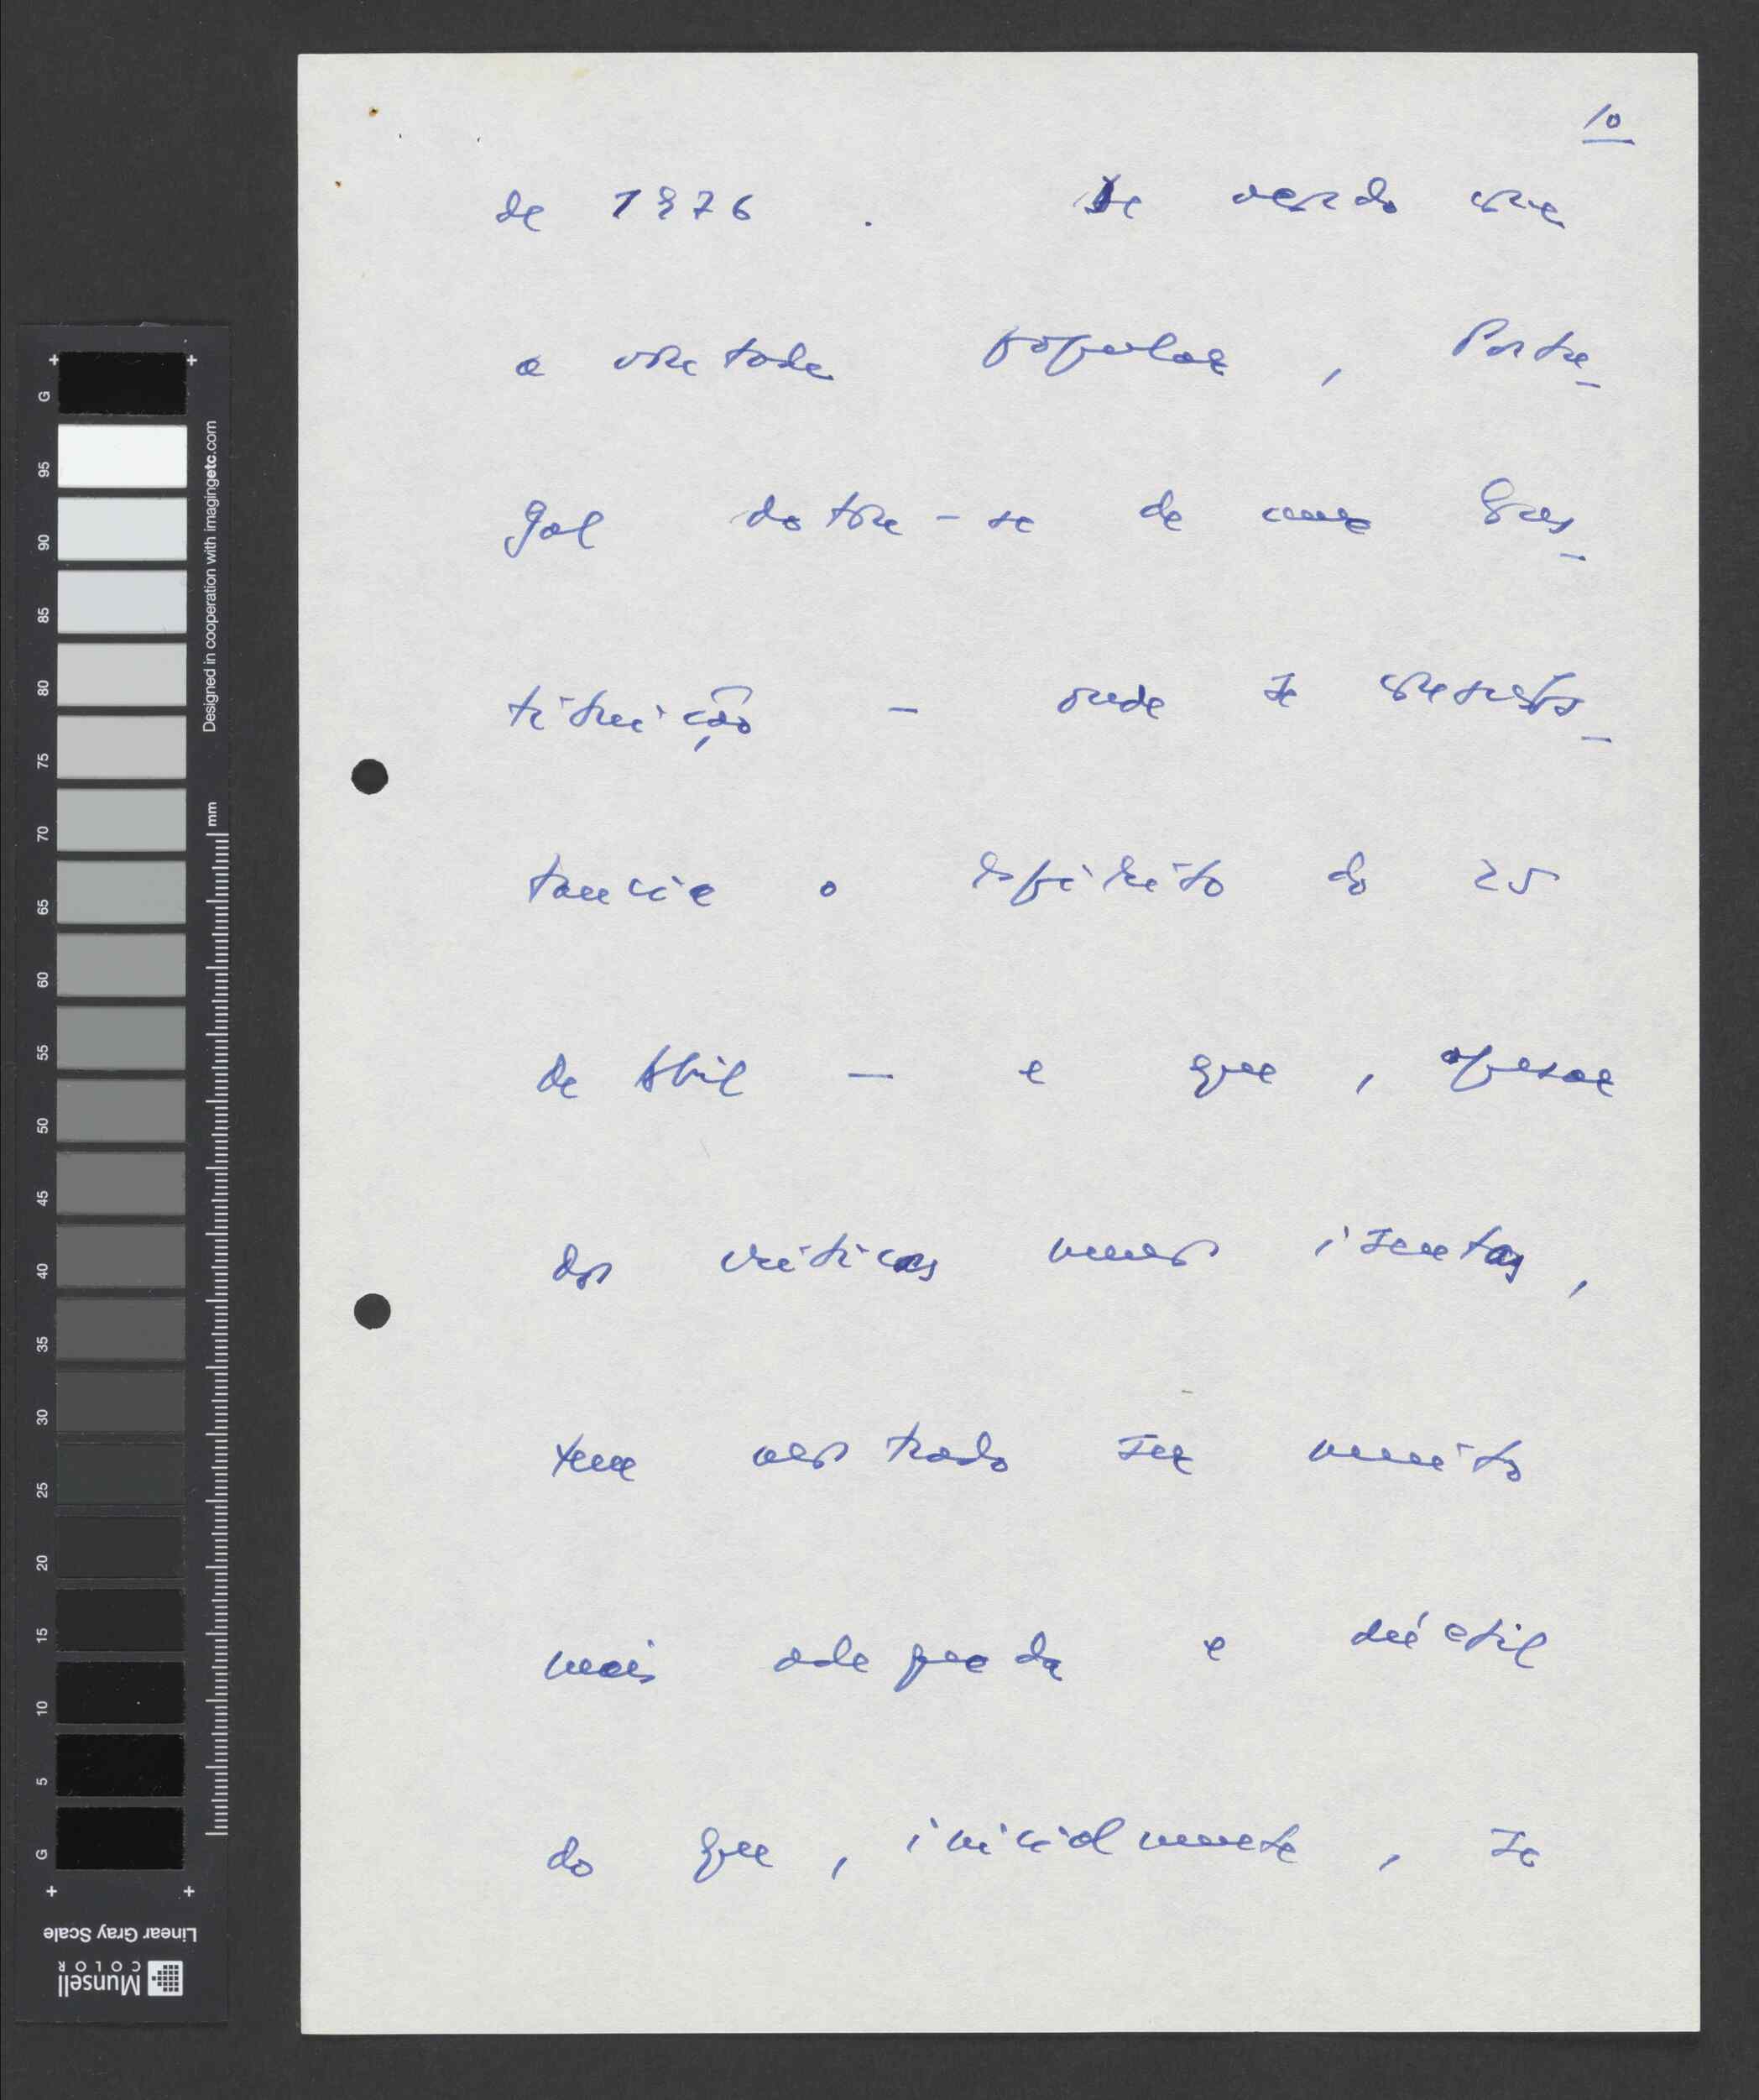 10
de 1976 . De acordo com
a vontade popular , Portu_
gal dotou-se de uma Cons_
tituição – onde se consubs_
tancia o espírito do 25
de Abril — e que , apesar
das críticas menos isentas ,
tem mostrado ser muito
mais adequada e dúctil
do que , inicialmente , se
G
95
90
85
80
75
70
65
60
55
50
45
40
35
30
25
20
15
10
5
G
Designed in cooperation with imagingetc.com
mm
Linear Gray Scale
Munsell
COLOR